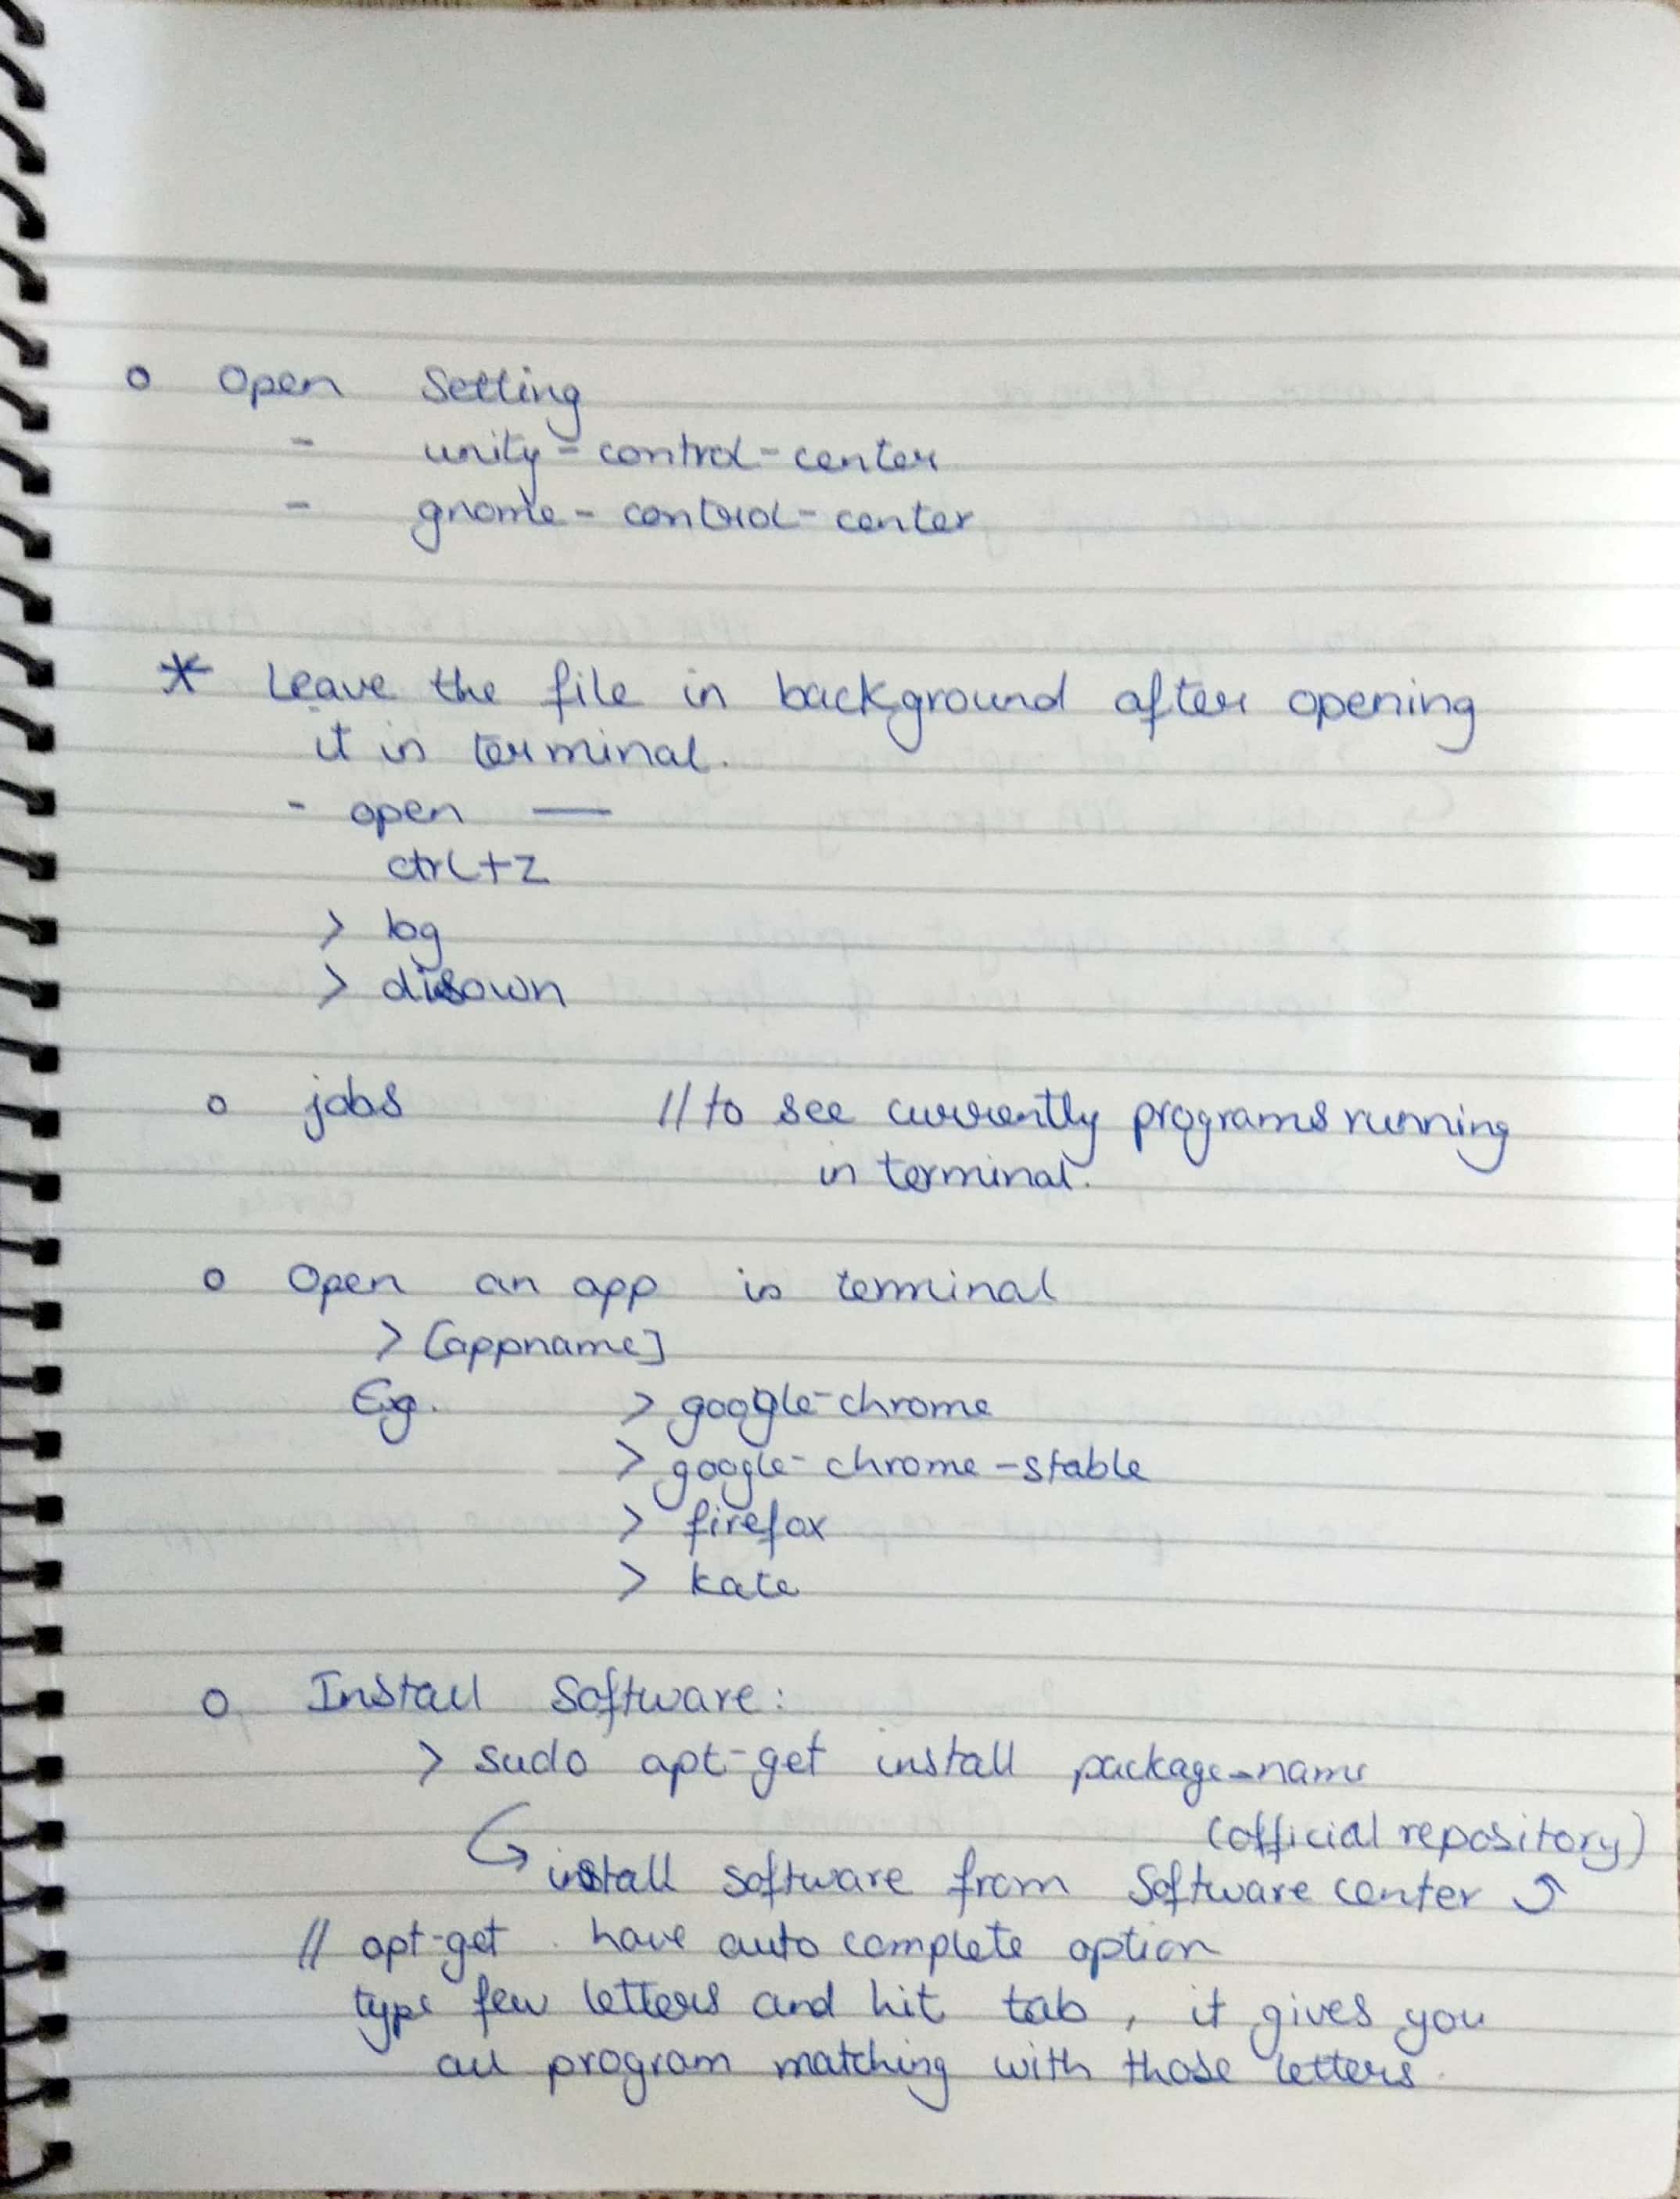 o Open Setting
- unity-control-center
- gnome-control-center
* Leave the file in background after opening
it in terminal.
- open —
ctrl+z
> bg
> disown
o jobs //to see currently programs running
in terminal.
o Open an app in terminal
> [appname]
Eg. > google-chrome
> google-chrome-stable
> firefox
> kate
o Install Software:
> sudo apt-get install package-name
(official repository)
↪ install software from Software center ⤴
// apt-get have auto complete option
type few letters and hit tab, it gives you
all program matching with those letters.